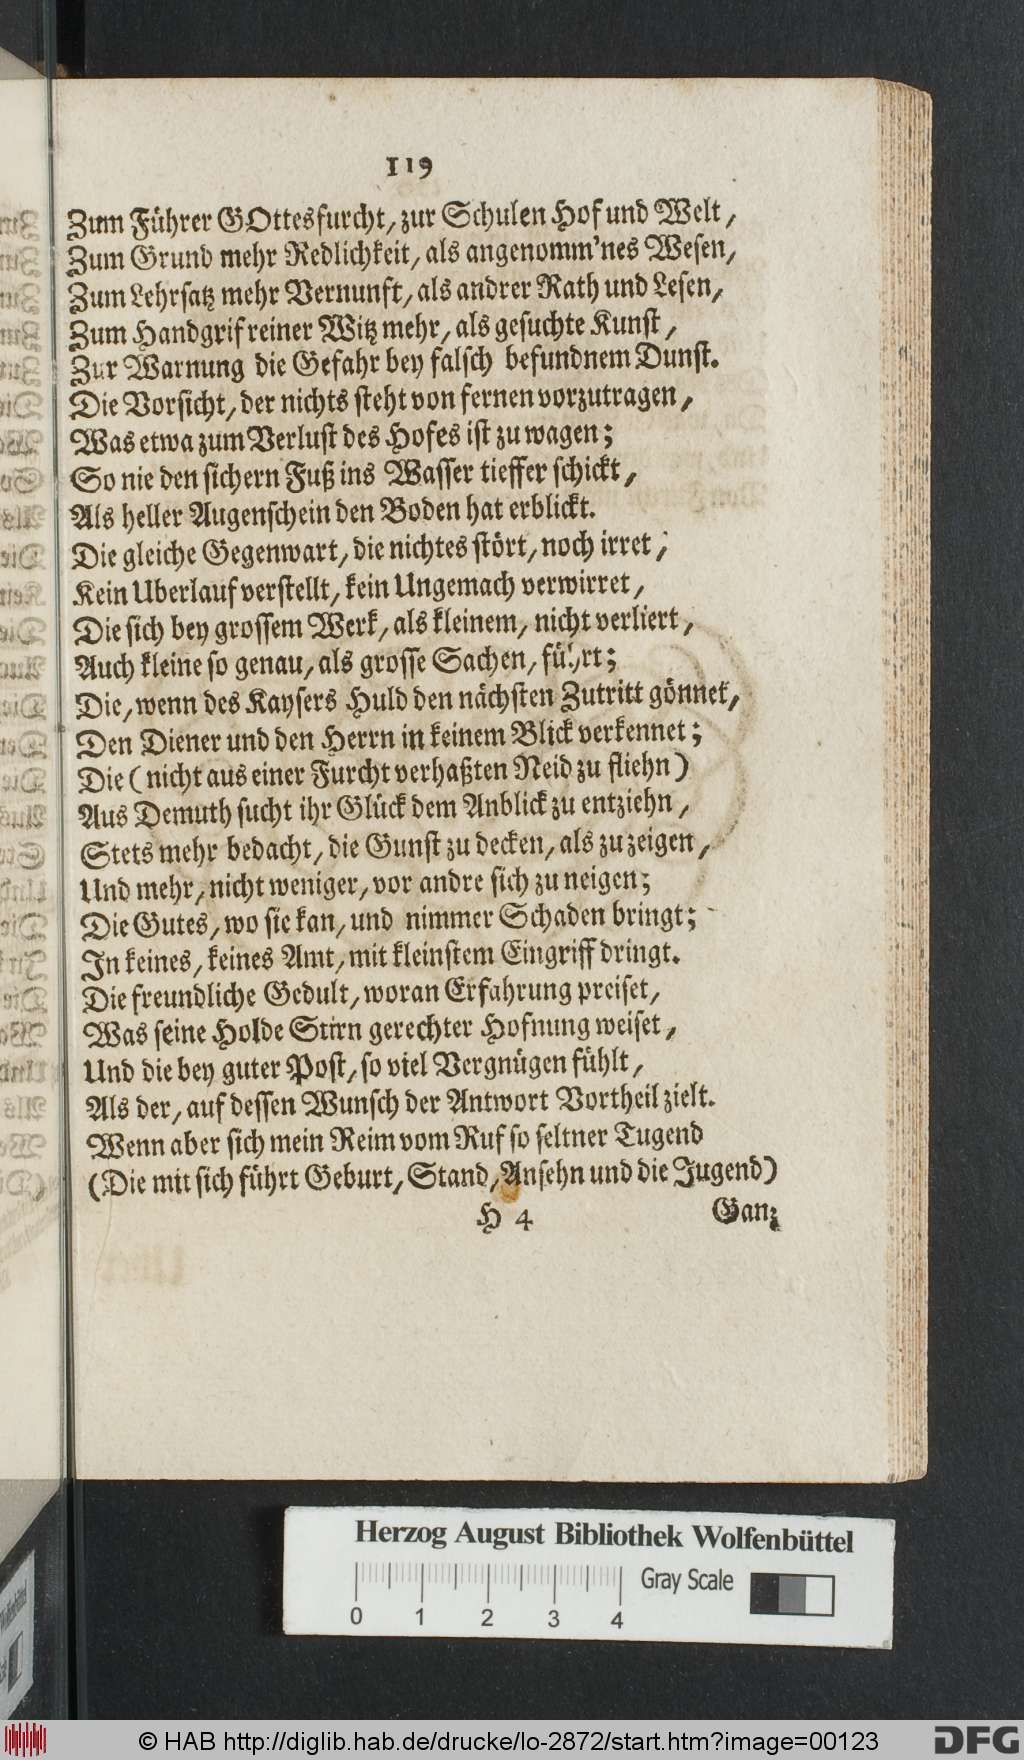 119
Zum Führer GOttesfurcht, zur Schulen Hof und Welt,
Zum Grund mehr Redlichkeit, als angenomm'nes Wesen,
Zum Lehrsatz mehr Vernunft, als andrer Rath und Lesen,
Zum Handgrif reiner Witz mehr, als gesuchte Kunst,
Zur Warnung die Gefahr bey falsch befundnem Dunst.
Die Vorsicht, der nichts steht von fernen vorzutragen,
Was etwa zum Verlust des Hofes ist zu wagen;
So nie den sichern Fuß ins Wasser tieffer schickt,
Als heller Augenschein den Boden hat erblickt.
Die gleiche Gegenwart, die nichtes stört, noch irret,
Kein Uberlauf verstellt, kein Ungemach verwirret,
Die sich bey grossem Werk, als kleinem, nicht verliert,
Auch kleine so genau, als grosse Sachen, führt;
Die, wenn des Kaysers Huld den nächsten Zutritt gönnet,
Den Diener und den Herrn in keinem Blick verkennet;
Die (nicht aus einer Furcht verhaßten Neid zu fliehn)
Aus Demuth sucht ihr Glück dem Anblick zu entziehn,
Stets mehr bedacht, die Gunst zu decken, als zu zeigen,
Und mehr, nicht weniger, vor andre sich zu neigen;
Die Gutes, wo sie kan, und nimmer Schaden bringt;
In keines, keines Amt, mit kleinstem Eingriff dringt.
Die freundliche Gedult, woran Erfahrung preiset,
Was seine Holde Stirn gerechter Hofnung weiset,
Und die bey guter Post, so viel Vergnügen fühlt,
Als der, auf dessen Wunsch der Antwort Vortheil zielt.
Wenn aber sich mein Reim vom Ruf so seltner Tugend
(Die mit sich führt Geburt, Stand, Ansehn und die Jugend)
H 4 Ganz
Herzog August Bibliothek Wolfenbüttel
Gray Scale
0 1 2 3 4
© HAB http://diglib.hab.de/drucke/lo-2872/start.htm?image=00123
DFG